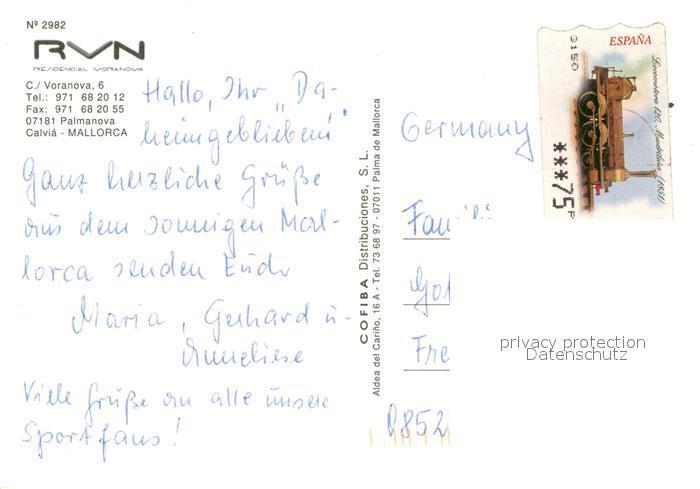 Nº 2982
RVN
RESIDENCIAL VORANOVA
C./ Voranova, 6
Tel.: 971 68 20 12
Fax: 971 68 20 55
07181 Palmanova
Calviá - MALLORCA
Hallo, Ihr „Da-
heimgebliebenen"
Ganz herzliche Grüße
aus dem sonnigen Mal-
lorca senden Euch
Maria, Gerhard u.
Anneliese
Viele Grüße an alle unsere
Sportfans!
COFIBA Distribuciones, S. L.
Aldea del Cariño, 16 A - Tel. 73 68 97 - 07011 Palma de Mallorca
ESPAÑA
3150
(1851)
***75 P
Germany
Fami
Fre
0852
privacy protection
Datenschutz